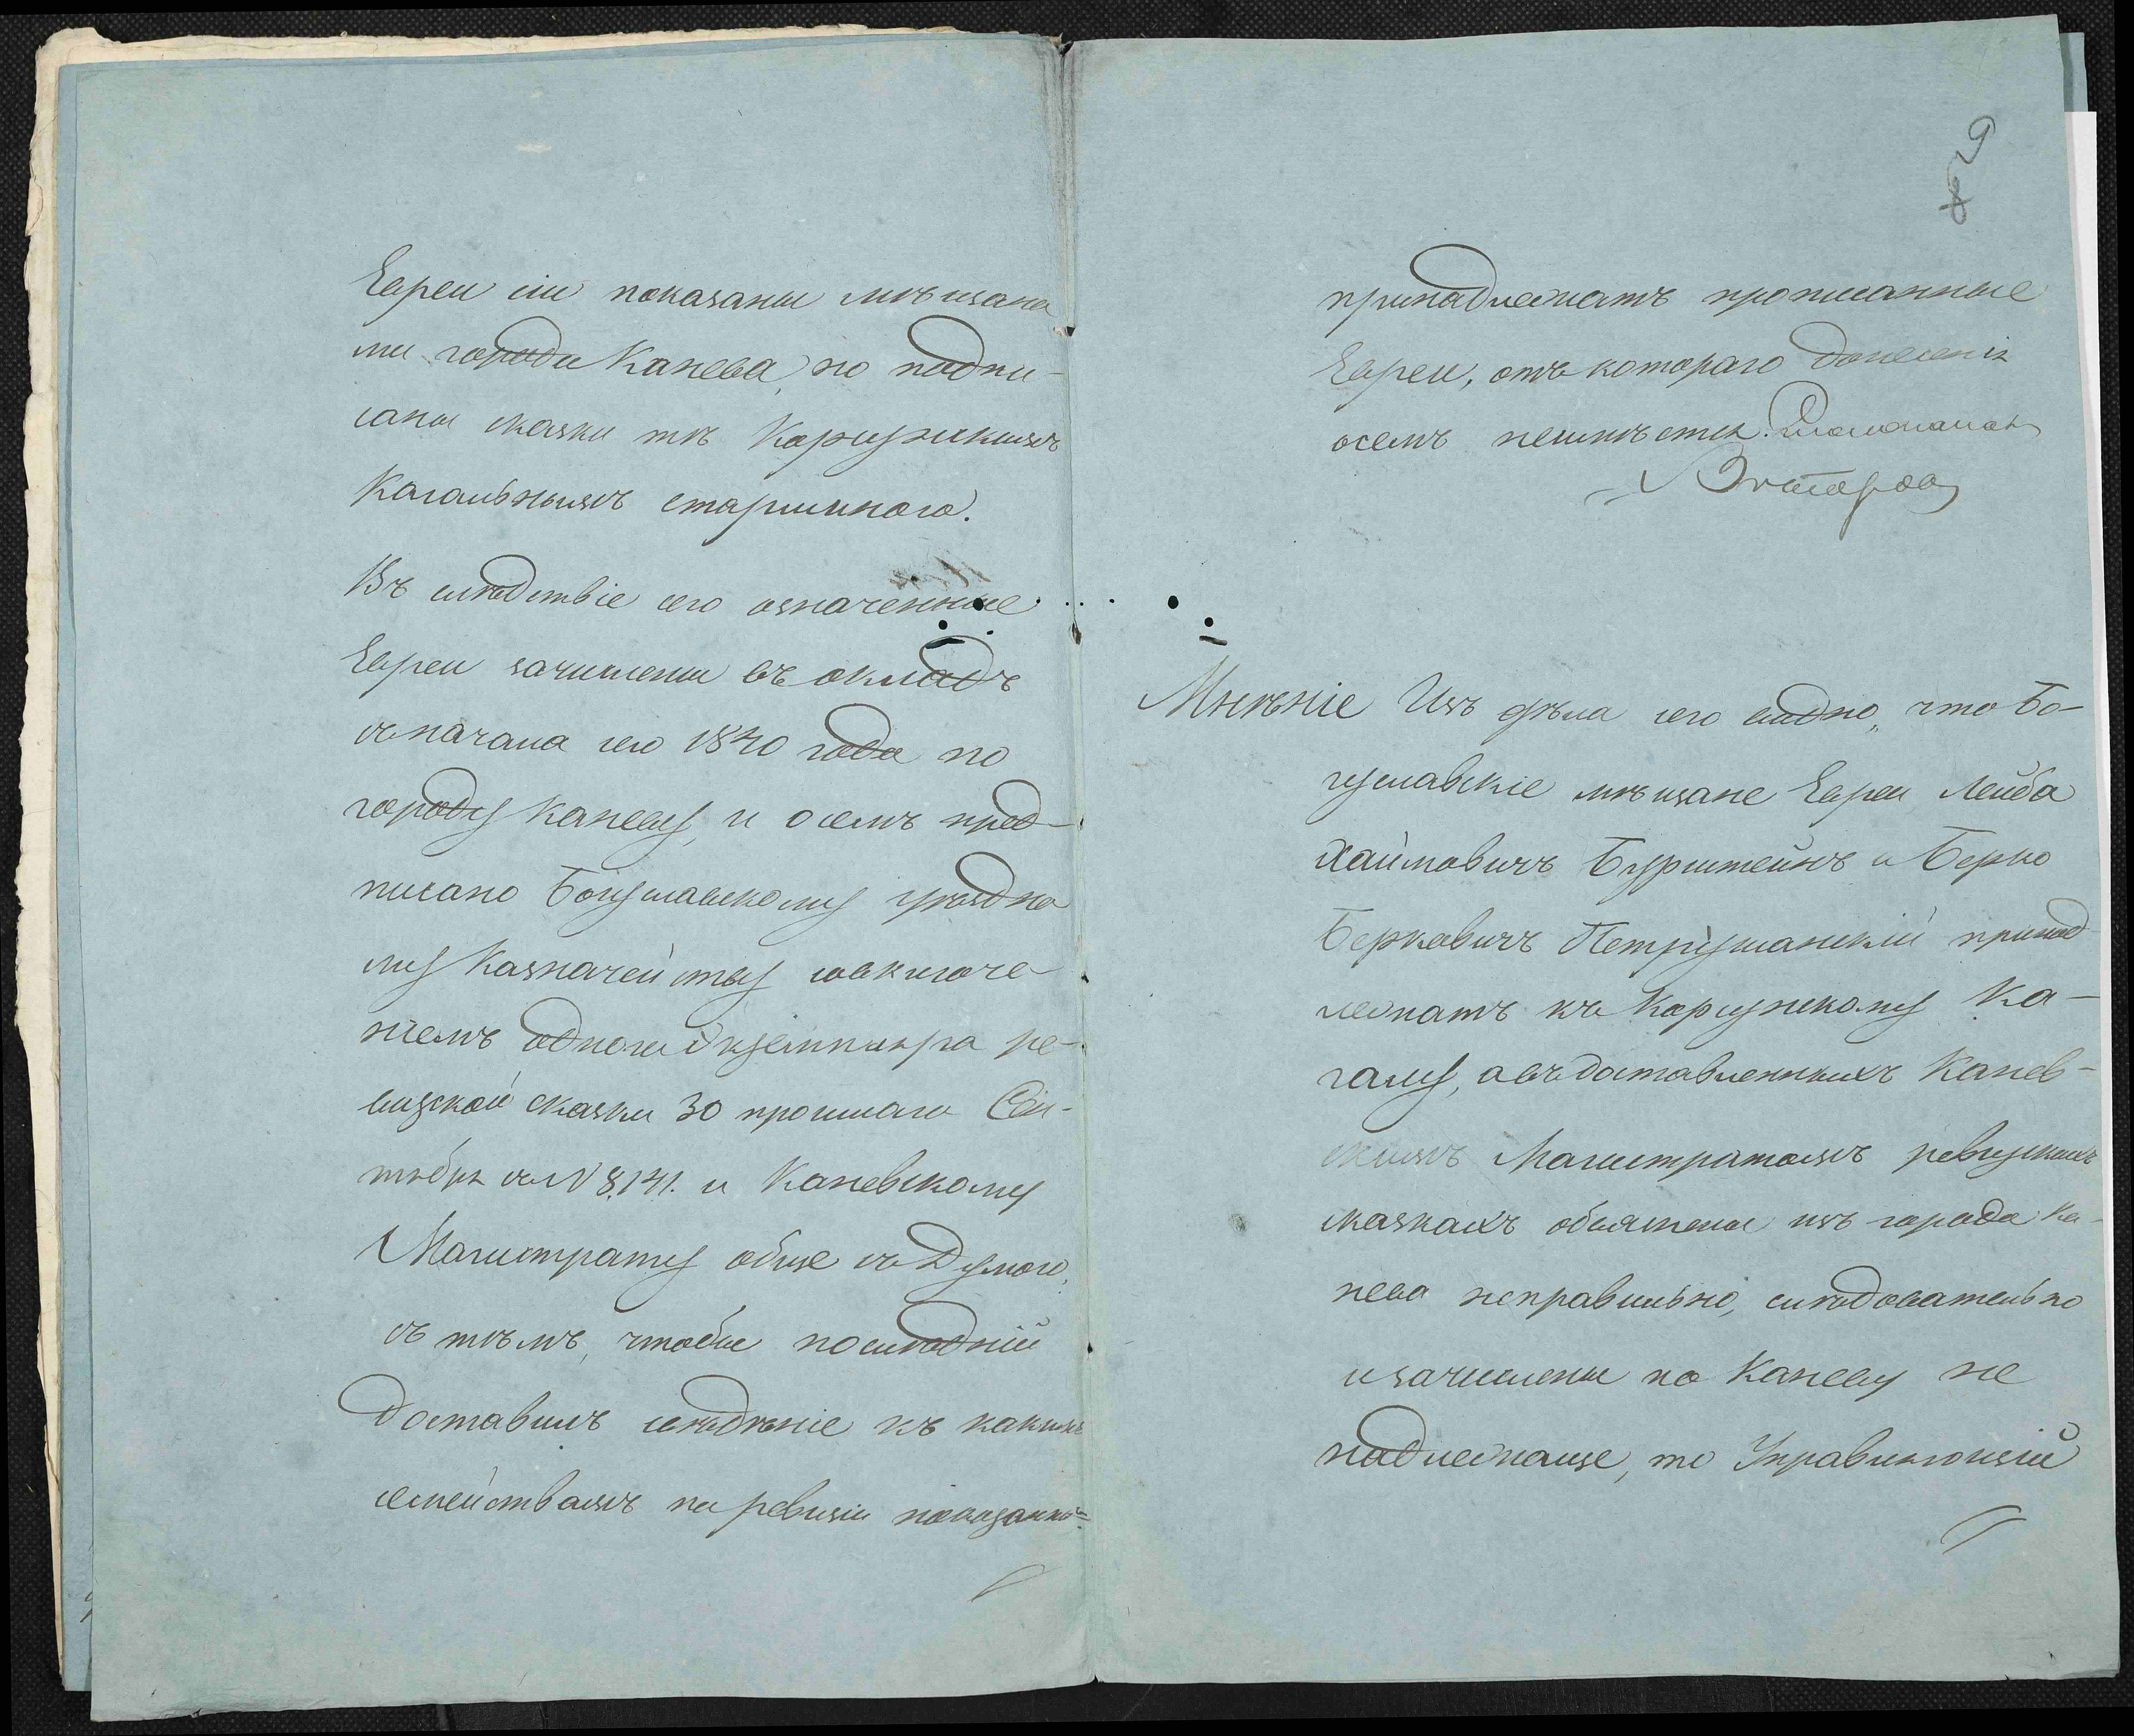 Евреи сіи показаны мѣщана
ми города Канева, но подпи-
саны сказки тѣ Карцускимъ
Кагальнымъ старшиною.
Въ слѣдствіе сего означенные
Евреи зачислены въ окладъ
съ начала сего 1840 года по
городу Каневу, и о семъ пред-
писано Богуславскому уѣздно
му Казначейству со включе-
ніемъ одного экземпляра ре-
визской сказки 30 прошлаго Сен-
тября за N 8,141. и Каневскому
Магистрату обще съ Думою,
съ тѣмъ, чтобы послѣдній
доставилъ свѣдѣніе къ какимъ
семействамъ по ревизіи показаннымъ
9
8
принадлежатъ прописанные
Евреи, отъ котораго донесенія
о семъ неимѣется.
Мнѣніе Изъ дѣла сего видно, что Бо-
гуславскіе мѣщане Евреи Лейба
Хаимовичъ Бурштейнъ и Берко
Берковичъ Петрушанскій принад
лежатъ къ Карцускому Ка-
галу, а въ доставленныхъ Канев-
скимъ Магистратомъ ревизскихъ
сказкахъ объяснены изъ города Ка-
нева неправильно, слѣдовательно
и зачислены по Каневу не
надлежаще, то Управляющій